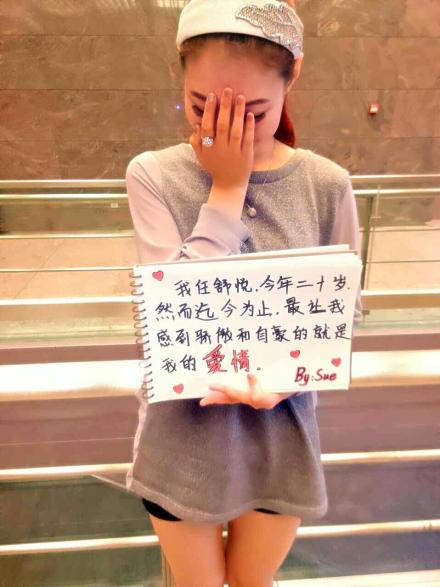 我任舒悦.今年二十岁.
然而迄今为止.最让我
感到骄傲和自豪的就是
我的爱情.
By:Sue